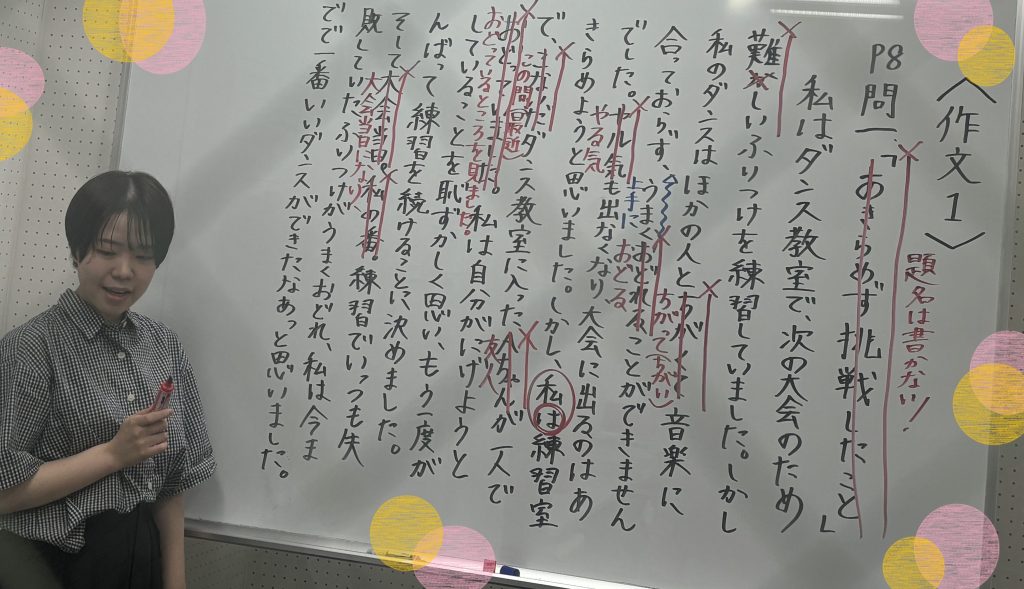 〈作文1〉
題名は書かない!
P8 問一、「あきらめず挑戦したこと」
私はダンス教室で、次の大会のため
難しいふりつけを練習していました。しかし
私のダンスはほかの人とちがく、音楽に
ちがって
合っておらず、うまくおどれることができません
上手に おどる
でした。ヤル気も出なくなり大会に出るのはあ
やる気
きらめようと思いました。しかし、私は練習室
で、ダンス教室に入ったちゃんが一人で
この間(最近)
友人
おどっていました。私は自分がにげようと
おどっているところを見ました。
していることを恥ずかしく思い、もう一度が
んばって練習を続けることに決めました。
そして大会当日。私の番。練習でいつも失
大会当日になり
敗していたふりつけがうまくおどれ、私は今ま
でで一番いいダンスができたなあっと思いました。